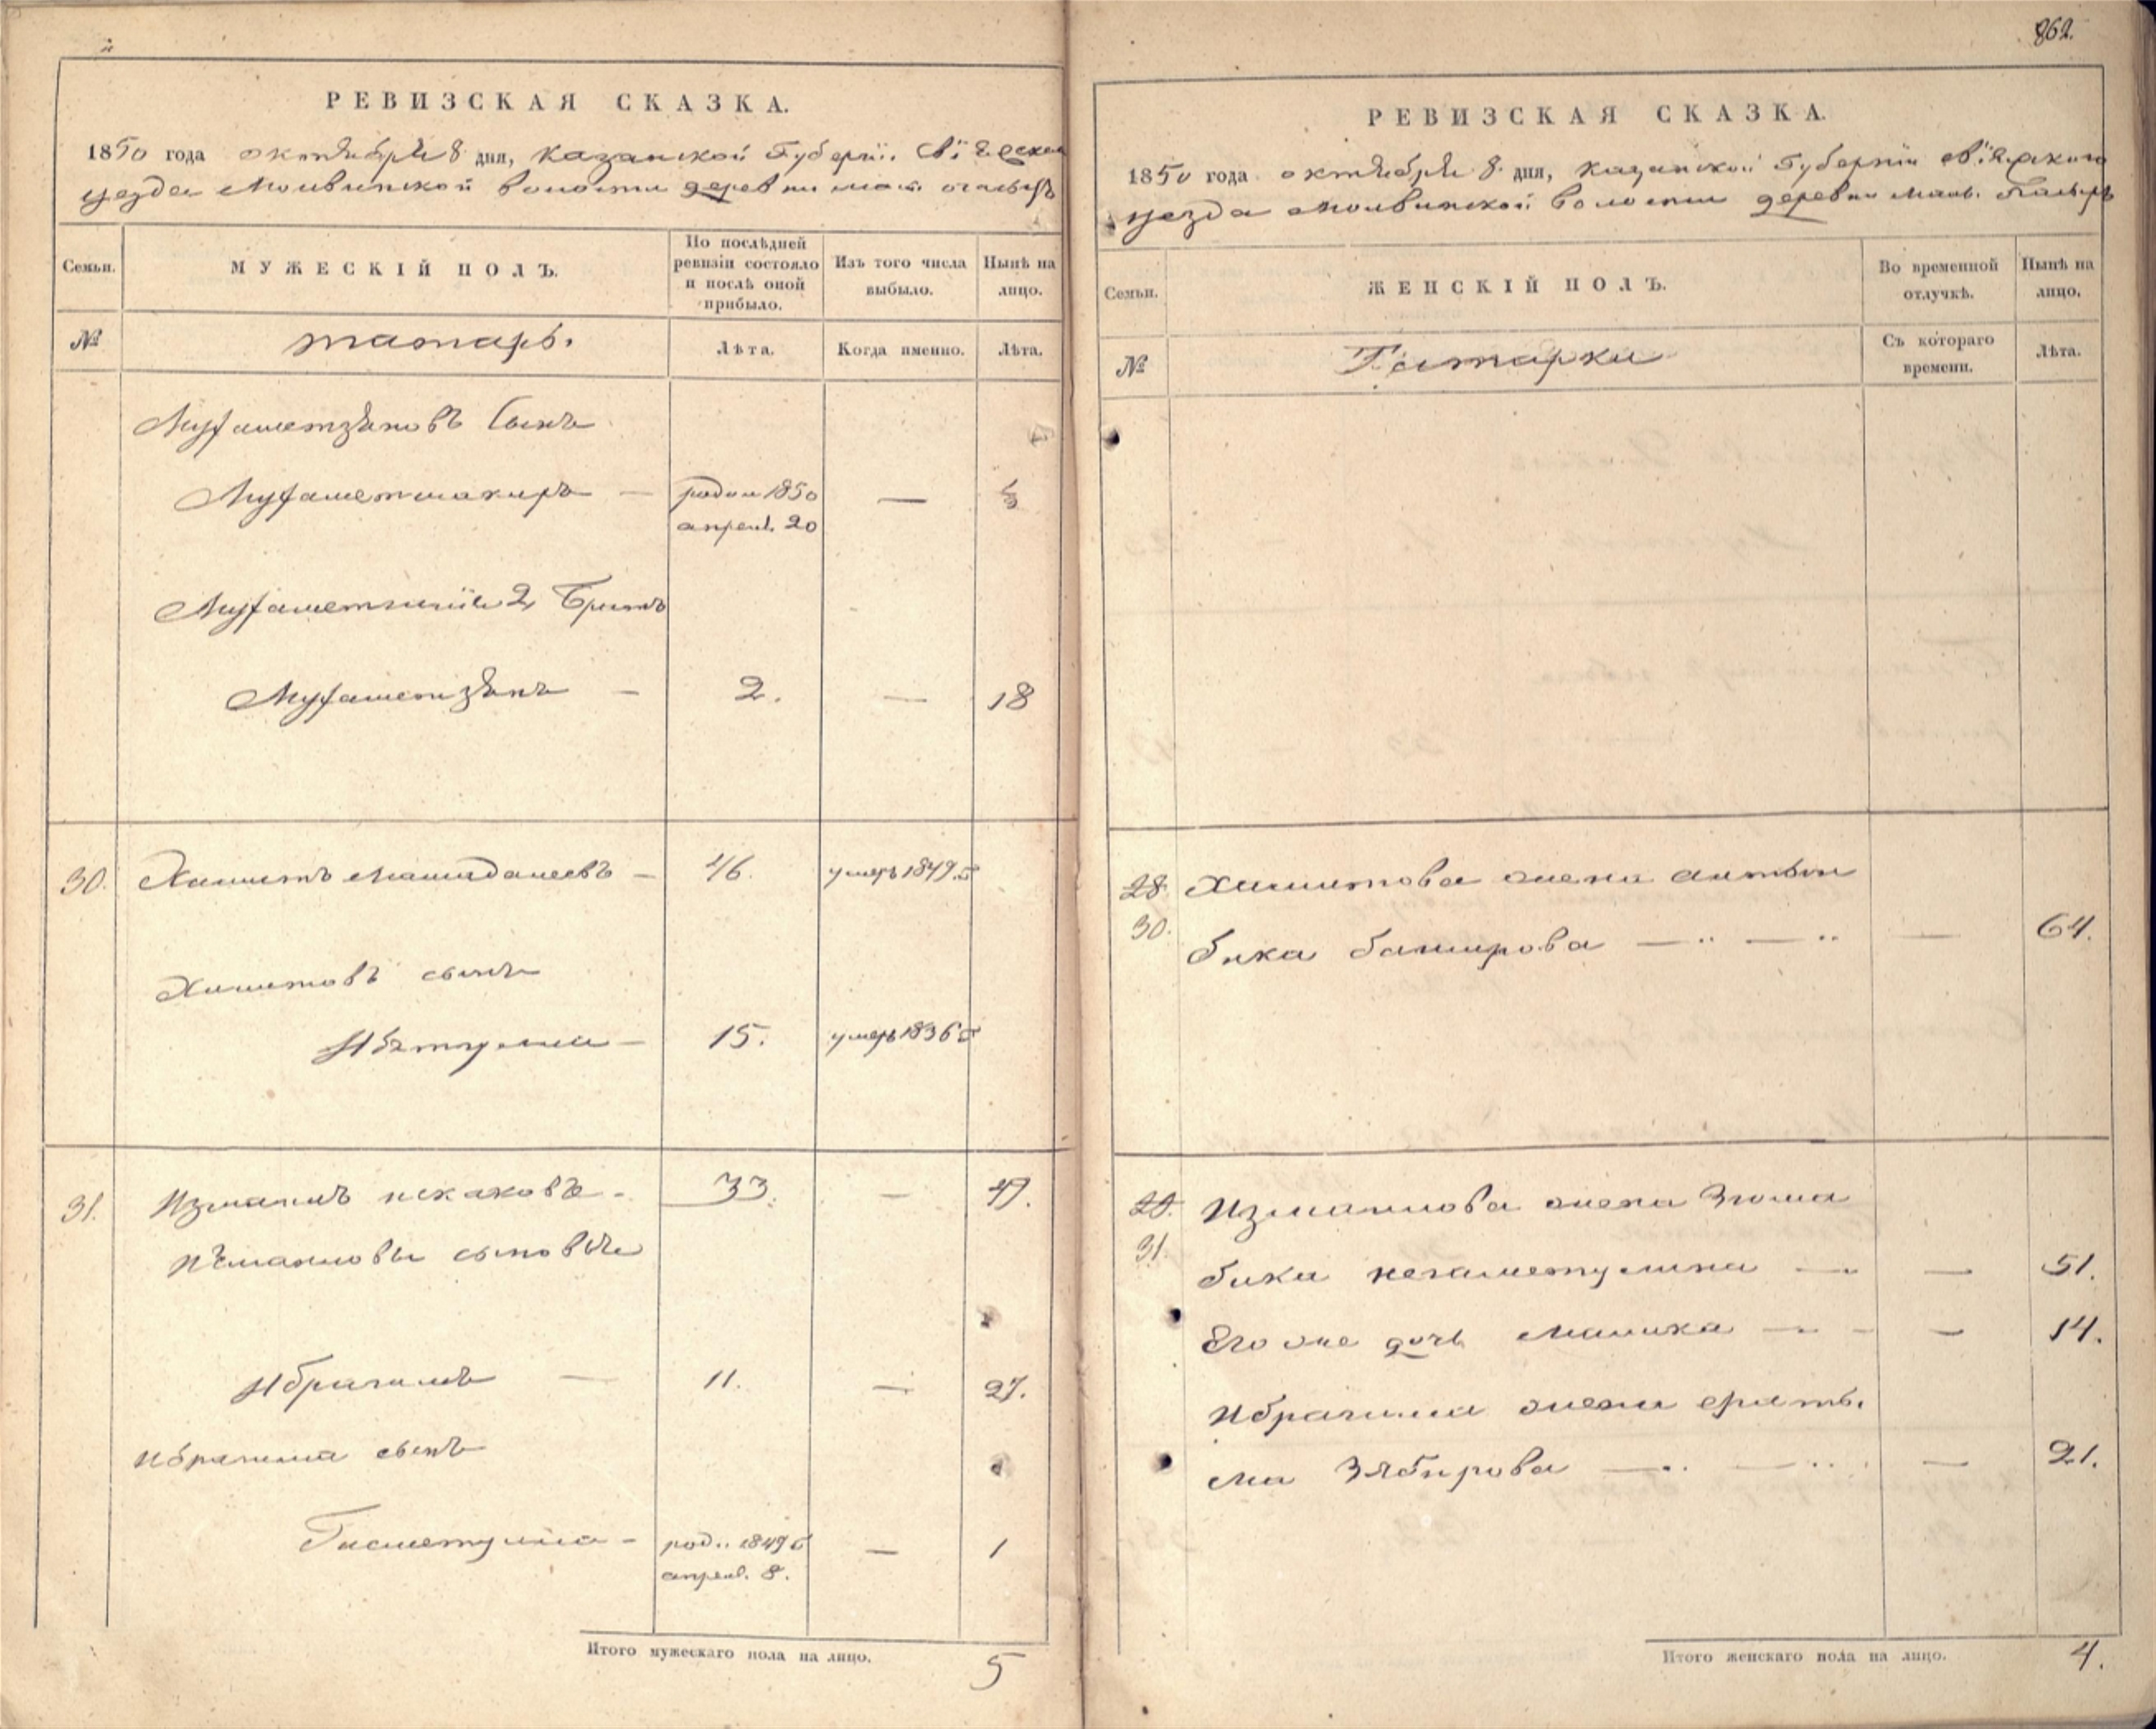 862.
РЕВИЗСКАЯ СКАЗКА.
1850 года октября 8 дня, Казанской Губернiи Свiяжскаго
уезда Молвинской волости деревни мал.
Семьи.
МУЖЕСКІЙ ПОЛЪ.
По послѣдней ревизіи состояло и послѣ оной прибыло.
Изъ того числа выбыло.
Нынѣ на лицо.
№
татаръ.
Лѣта.
Когда именно.
Лѣта.
Мухаметзяновъ Сынъ
Мухаметшакиръ — родил 1850 — ½
апрел. 20
2 Братъ
Мухаметзянъ — 2. — 18
30. Хамитъ — 46. умеръ 1849 г
Хамитовъ сынъ
15. умеръ 1836 г
31. Измаилъ искаковъ - 33. — 49.
Измаиловы сыновья
Ибрагимъ — 11. — 27.
Ибрагима сынъ
род.. 1849 г — 1
апрел. 8.
Итого мужескаго пола на лицо.
5
РЕВИЗСКАЯ СКАЗКА.
1850 года октября 8 дня, Казанской Губернiи Свiяжскаго
уезда Молвинской волости деревни мал.
Семьи.
ЖЕНСКІЙ ПОЛЪ.
Во временной отлучкѣ.
Нынѣ на лицо.
№
Татарки
Съ котораго времени.
Лѣта.
28. Хамитова жена
30. бика баширова — — — 64.
29. Измаилова жена Зюма
31. бика негаметулина — — 51.
Его же дочь Малика — — 14.
Ибрагима жена
ма Зябирова — — — 21.
Итого женскаго пола на лицо.
4.